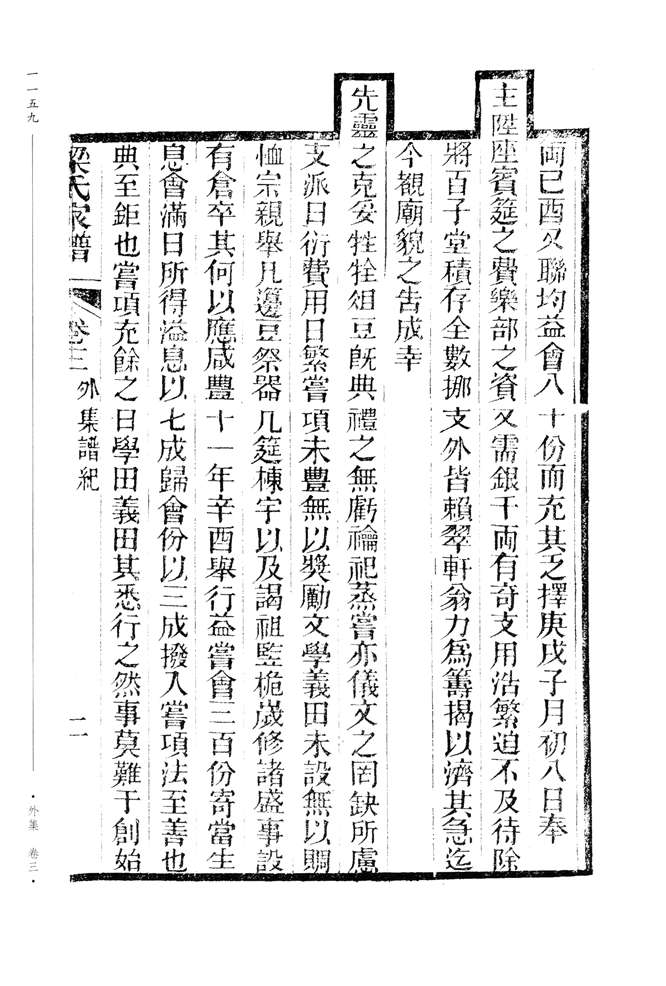 両已酉又聯均益會八十份而充其乏擇庚戌子月初八日奉
主陞座賓筵之費樂部之資又需銀千両有奇支用浩繁迫不及待除
將百子堂積存全數挪支外皆賴翠軒翁力為籌揭以濟其急迄
今觀廟貌之告成幸
先靈之克妥牲牷俎豆既典禮之無虧禴祀蒸嘗亦儀文之罔缺所慮
支派日衍費用日繁嘗項未豐無以獎勵文學義田未設無以賙
恤宗親舉凡籩豆祭器几筵棟宇以及謁祖竪桅歲修諸盛事設
有倉卒其何以應咸豐十一年辛酉舉行益嘗會三百份寄當生
息會滿日所得溢息以七成歸會份以三成撥入嘗項法至善也
典至鉅也嘗項充餘之日學田義田其悉行之然事莫難于創始
梁氏家譜 卷三 外集譜紀 二
一一五九 ·外集 卷三·